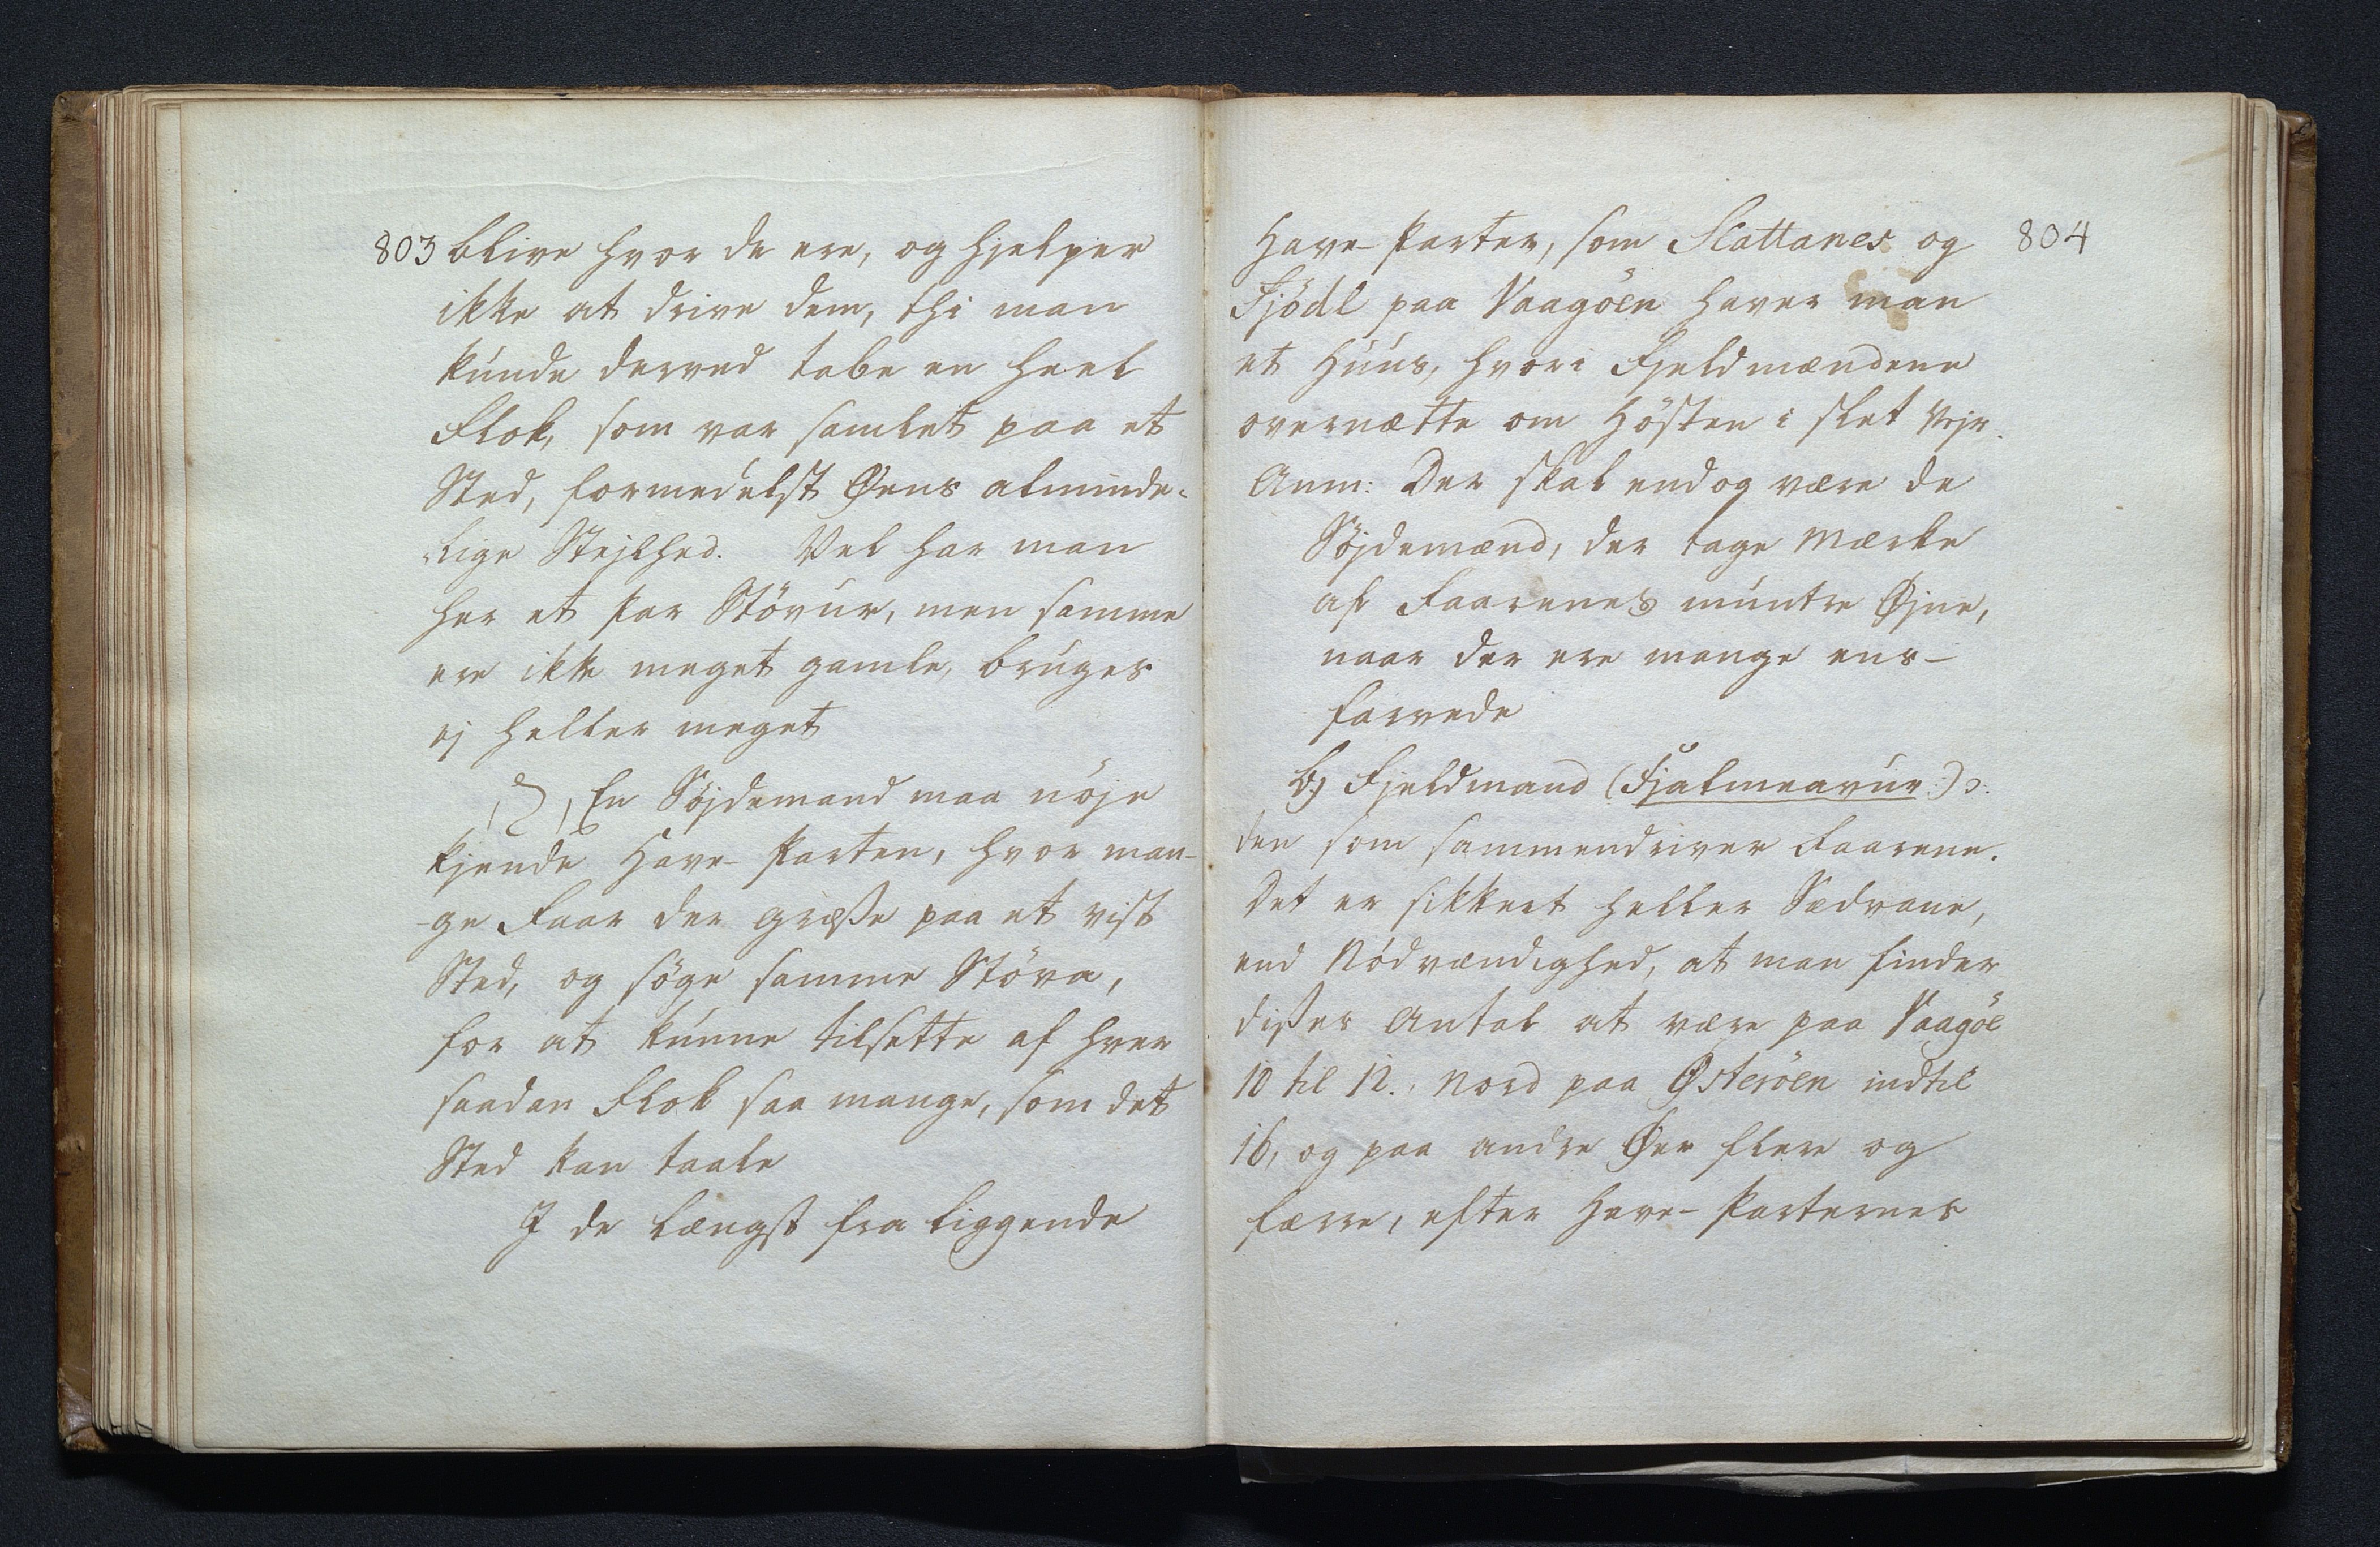 803
blive hvor de ere, og hjelper
ikke at drive dem, thi man
kunde derved tabe en heel
Flok, som var samlet paa et
Sted, formedelst Øens alminde-
-lige Stejlhed. Vel har man
her et par Stövur, men samme
ere ikke meget gamle, bruges
ej heller meget
En Söjdemand maa nöje
kjende Have-Parten, hvor man-
-ge Faar der græsse paa et vist
Sted, og söge samme Störa,
for at kunne tilsette af hver
saadan Flok saa mange, som det
Sted kan taale
I de længst fra liggende
804
Have-Parter, som Slattanes og
Fjödl paa Vaagöen haver man
et Huus, hvori Fjeldmændene
overnætte om Hösten i slet Vejr.
Anm: Der skal endog være de
Söjdemænd, der tage Mærke
af Faarenes muntre Øjne,
naar der ere mange ens-
farvede
b) Fjeldmand (Fjalmeavur:) ɔ:
den som sammendriver Faarene.
Det er sikkert heller Sædvane,
end Nödvændighed, at man finder
disses Antal at være paa Vaagöe
10 til 12. Nord paa Österöen indtil
16, og paa andre Øer flere og
færre, efter Have-Parternes